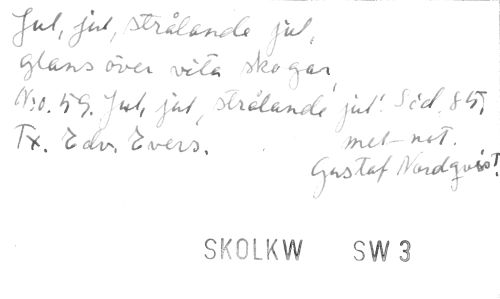 Jul, jul, strålande jul,
glans över vita skogar,
N:o. 59. Jul, jul, strålande jul! Sid. 85,
Tx. Edv. Evers. mel-not.
Gustaf Nordqvist.
SKOLKW SW 3